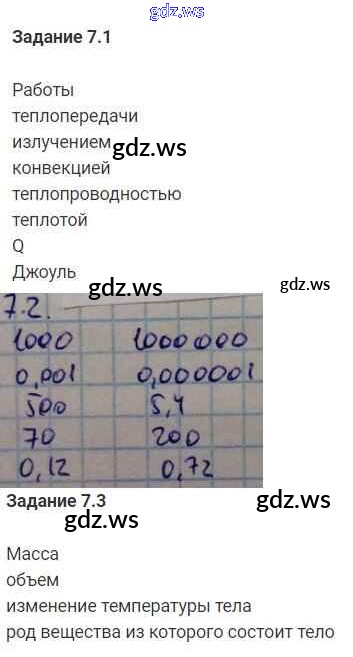 gdz.ws
Задание 7.1
Работы
теплопередачи
излучением
gdz.ws
конвекцией
теплопроводностью
теплотой
Q
Джоуль
gdz.ws
gdz.ws
7.2.
1000 1000000
0,001 0,000001
500 5,4
70 200
0,12 0,72
Задание 7.3
gdz.ws
gdz.ws
Масса
объем
изменение температуры тела
род вещества из которого состоит тело